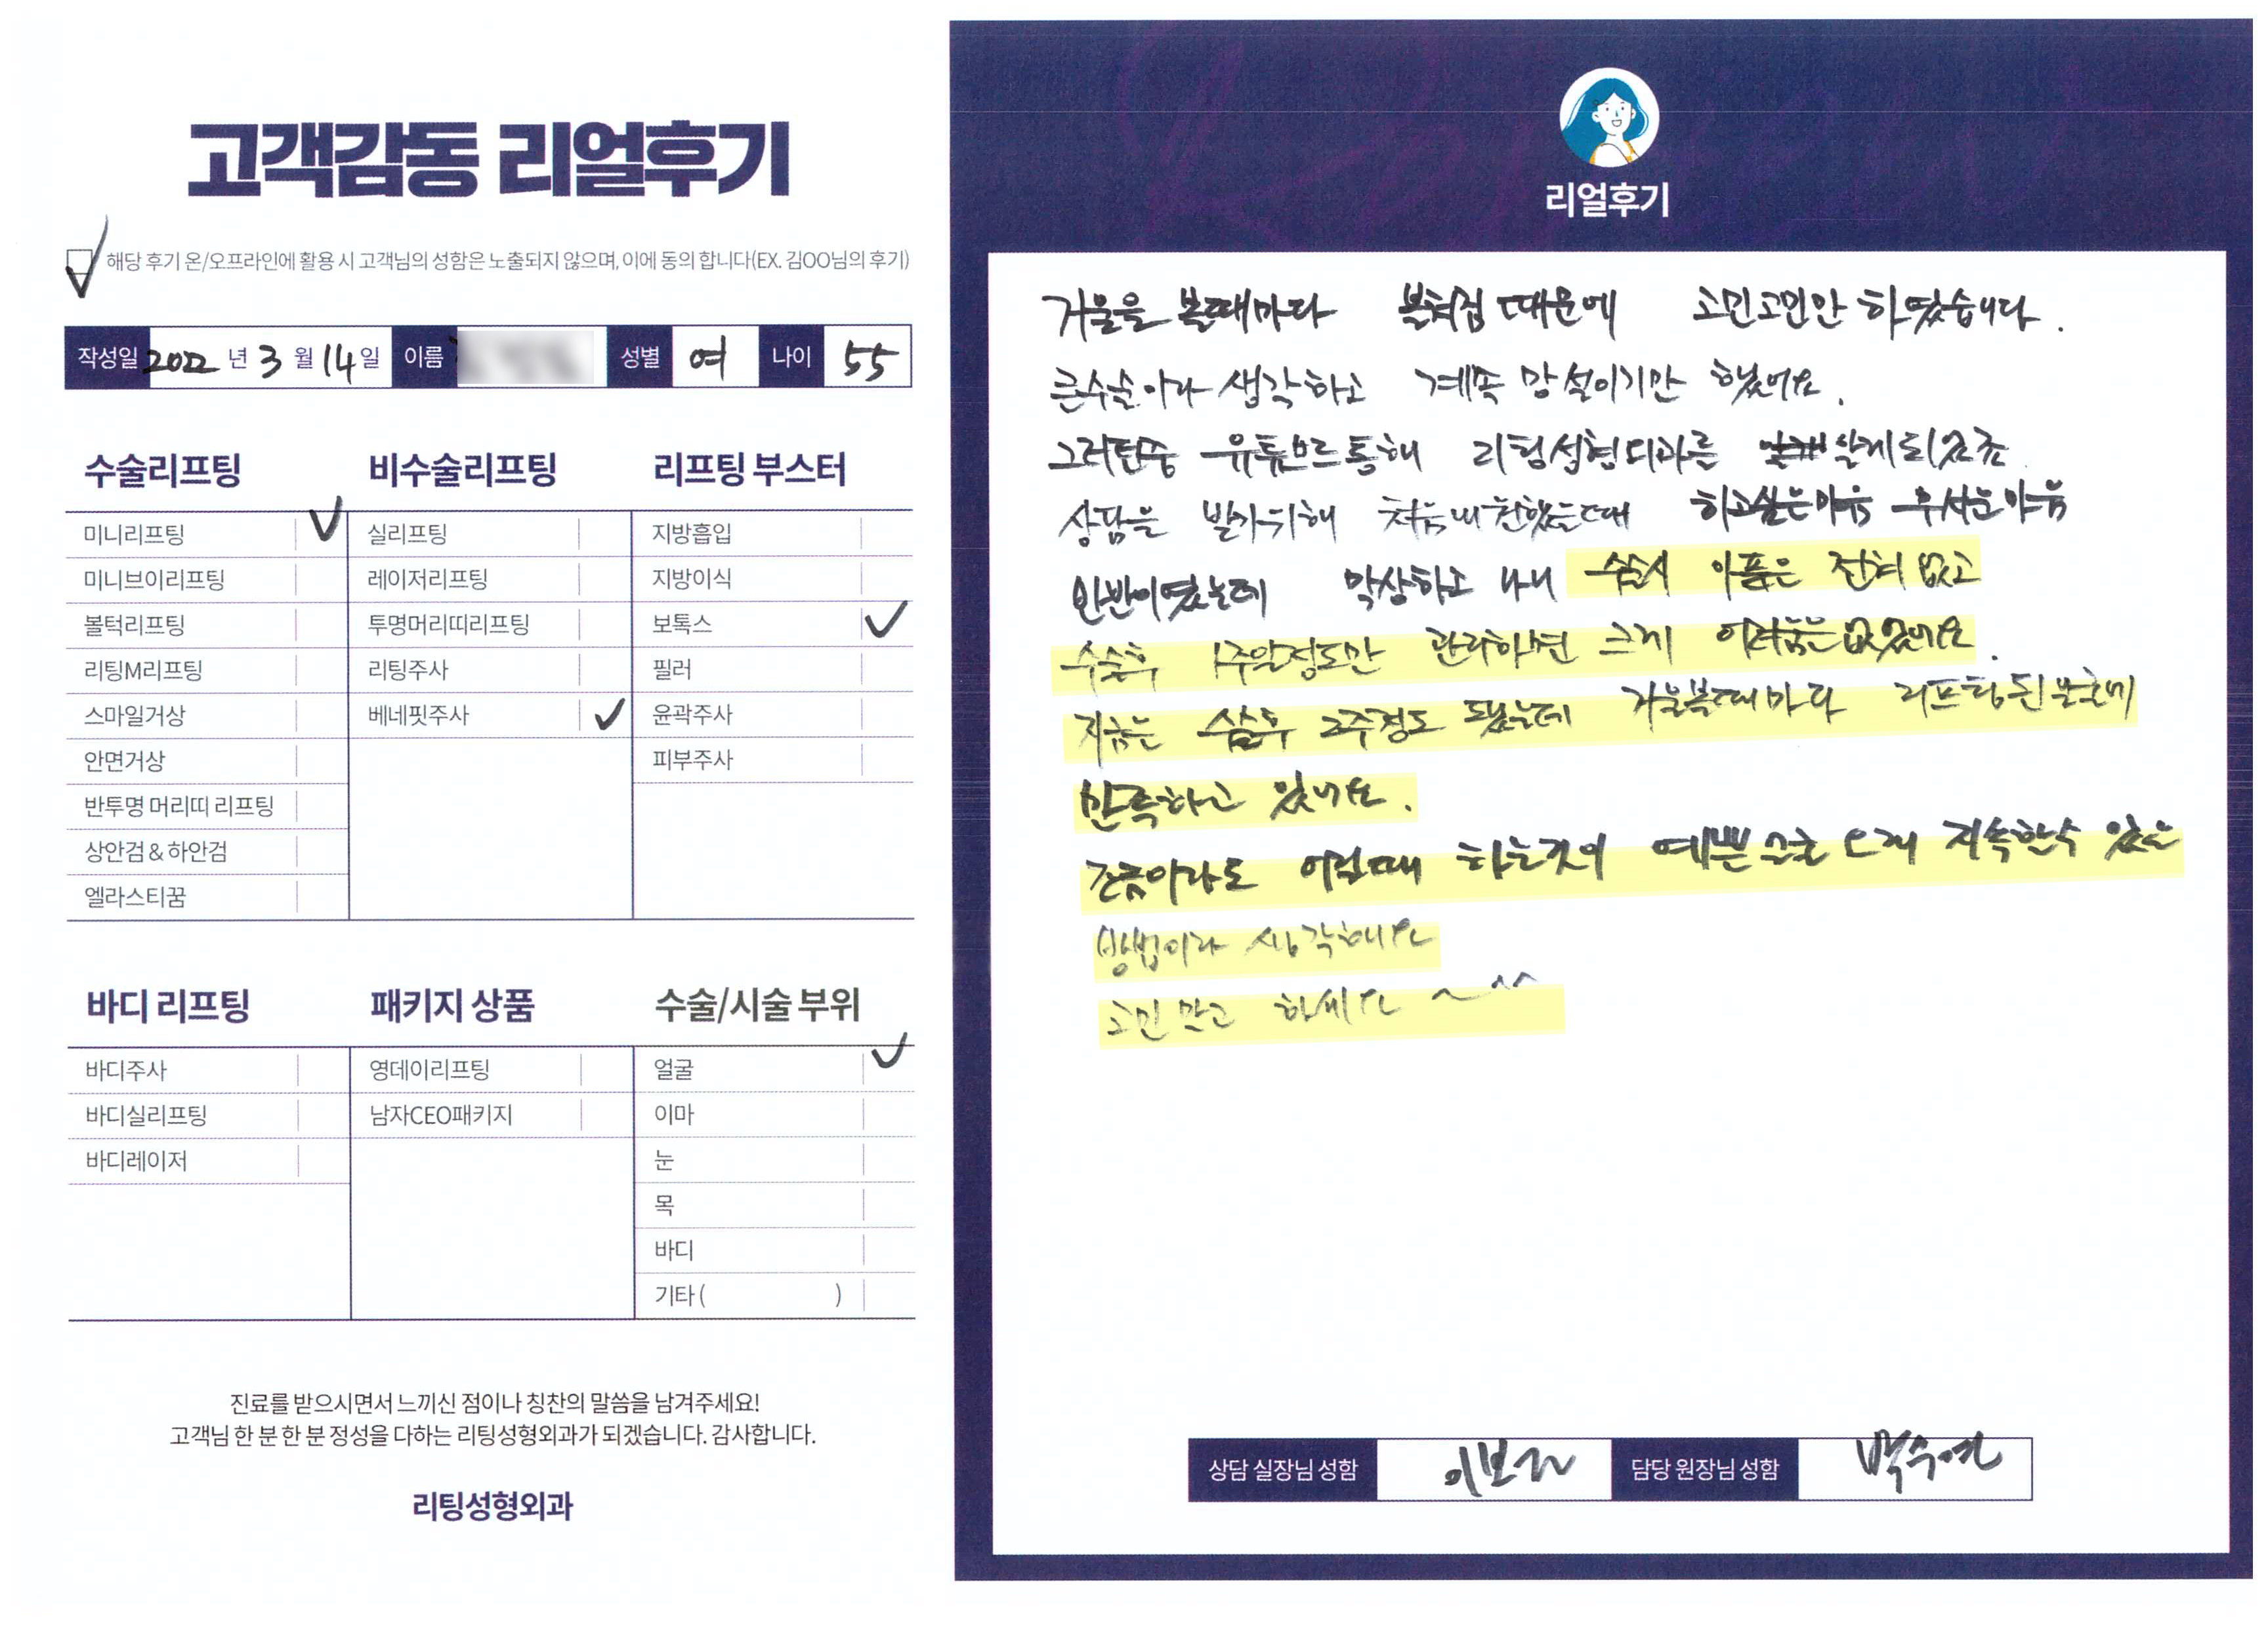 고객감동 리얼후기
해당 후기 온/오프라인에 활용 시 고객님의 성함은 노출되지 않으며, 이에 동의 합니다(EX. 김OO님의 후기)
작성일 2022 년 3 월 14 일 이름 성별 여 나이 55
수술리프팅 비수술리프팅 리프팅 부스터
미니리프팅 실리프팅 지방흡입
미니브이리프팅 레이저리프팅 지방이식
볼턱리프팅 투명머리띠리프팅 보톡스
리팅M리프팅 리팅주사 필러
스마일거상 베네핏주사 윤곽주사
안면거상 피부주사
반투명 머리띠 리프팅
상안검 & 하안검
엘라스티꿈
바디 리프팅 패키지 상품 수술/시술 부위
바디주사 영데이리프팅 얼굴
바디실리프팅 남자CEO패키지 이마
바디레이저 눈
목
바디
기타 ( )
진료를 받으시면서 느끼신 점이나 칭찬의 말씀을 남겨주세요!
고객님 한 분 한 분 정성을 다하는 리팅성형외과가 되겠습니다. 감사합니다.
리팅성형외과
리얼후기
거울을 볼때마다 볼쳐짐 때문에 고민고민만 하였습니다.
큰수술이라 생각하고 계속 망설이기만 했어요.
그러던중 유튜브르통해 리팅성형외과를 알게되었죠
상담을 받기위해 처음내원했을때 하고싶은마음 무서운마음
반반이였는데 막상하고 나니 수술시 아픔은 전혀 없고
수술후 1주일정도만 관리하면 크게 어려움은 없었어요.
지금은 수술후 2주정도 됐는데 거울볼때마다 리프팅된모습에
만족하고 있어요.
조금이라도 어릴때 하는것이 예쁜모습 오래 지속할수 있는
방법이라 생각해요
고민 말고 하세요 ~^^
상담 실장님 성함 담당 원장님 성함 박수연